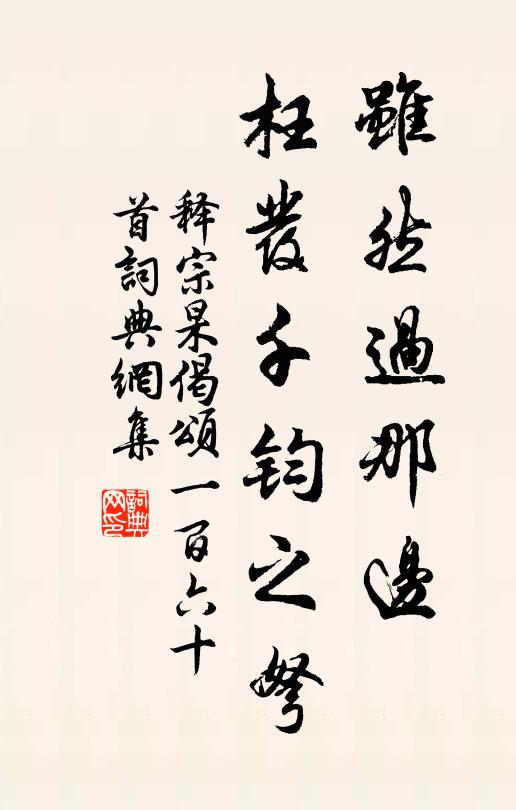 雖然過那邊
枉發千鈞之弩
释宗杲偈頌一百六十
首詞典網集
詞典网印